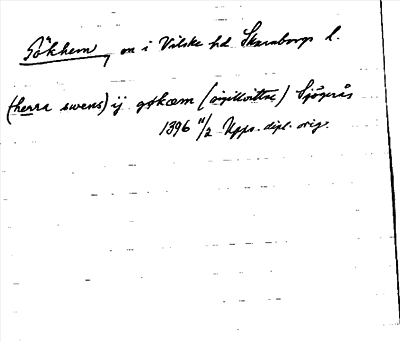 Gökhem, sn i Vilske hd Skaraborgs l.
(herra swens) ij gøkæm (sigillvittne) Sjögerås
1396 11/2 Upps. dipl. orig.